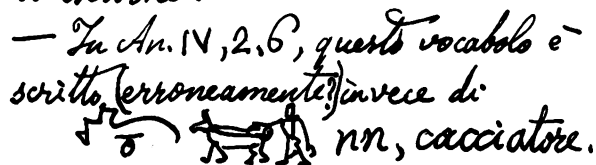 — In An. IV, 2, 6, questo vocabolo è
scritto (erroneamente?) invece di
nn, cacciatore.